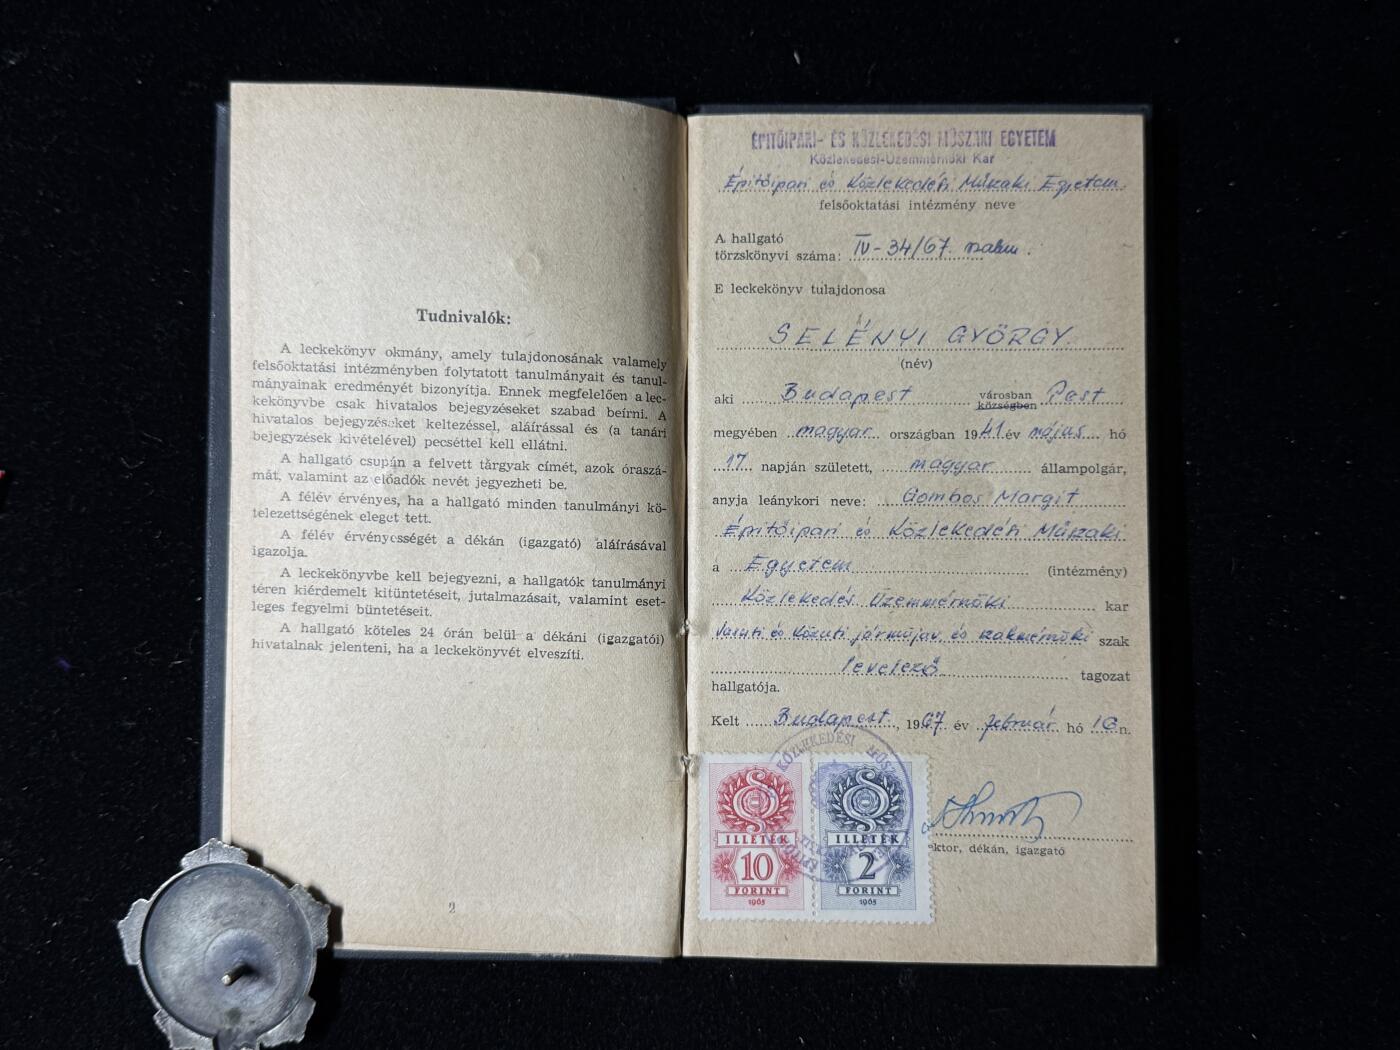 Tudnivalók:
A leckekönyv okmány, amely tulajdonosának valamely
felsőoktatási intézményben folytatott tanulmányait és tanul-
mányainak eredményét bizonyítja. Ennek megfelelően a lec-
kekönyvbe csak hivatalos bejegyzéseket szabad beírni. A
hivatalos bejegyzéseket keltezéssel, aláírással és (a tanári
bejegyzések kivételével) pecséttel kell ellátni.
A hallgató csupán a felvett tárgyak címét, azok óraszá-
mát, valamint az előadók nevét jegyezheti be.
A félév érvényes, ha a hallgató minden tanulmányi kö-
telezettségének eleget tett.
A félév érvényességét a dékán (igazgató) aláírásával
igazolja.
A leckekönyvbe kell bejegyezni, a hallgatók tanulmányi
téren kiérdemelt kitüntetéseit, jutalmazásait, valamint eset-
leges fegyelmi büntetéseit.
A hallgató köteles 24 órán belül a dékáni (igazgatói)
hivatalnak jelenteni, ha a leckekönyvét elveszíti.
2
ÉPITŐIPARI- ÉS KÖZLEKEDÉSI MŰSZAKI EGYETEM
Közlekedési-Üzemmérnöki Kar
Építőipari és Közlekedési Műszaki Egyetem
felsőoktatási intézmény neve
A hallgató
törzskönyvi száma: IV-34/67. szám.
E leckekönyv tulajdonosa
SELÉNYI GYÖRGY
(név)
aki Budapest városban Pest
községben
megyében magyar országban 1941 év május hó
17 napján született, magyar állampolgár,
anyja leánykori neve: Gombos Margit
Építőipari és Közlekedési Műszaki
a Egyetem (intézmény)
Közlekedés Üzemmérnöki kar
Vasuti és Közuti járműjav. és szakmérnöki szak
levelező tagozat
hallgatója.
Kelt Budapest, 1967 év február hó 16n.
KÖZLEKEDÉSI MŰSZ
ILLETÉK
10
FORINT
1965
ILLETÉK
2
FORINT
1965
ektor, dékán, igazgató